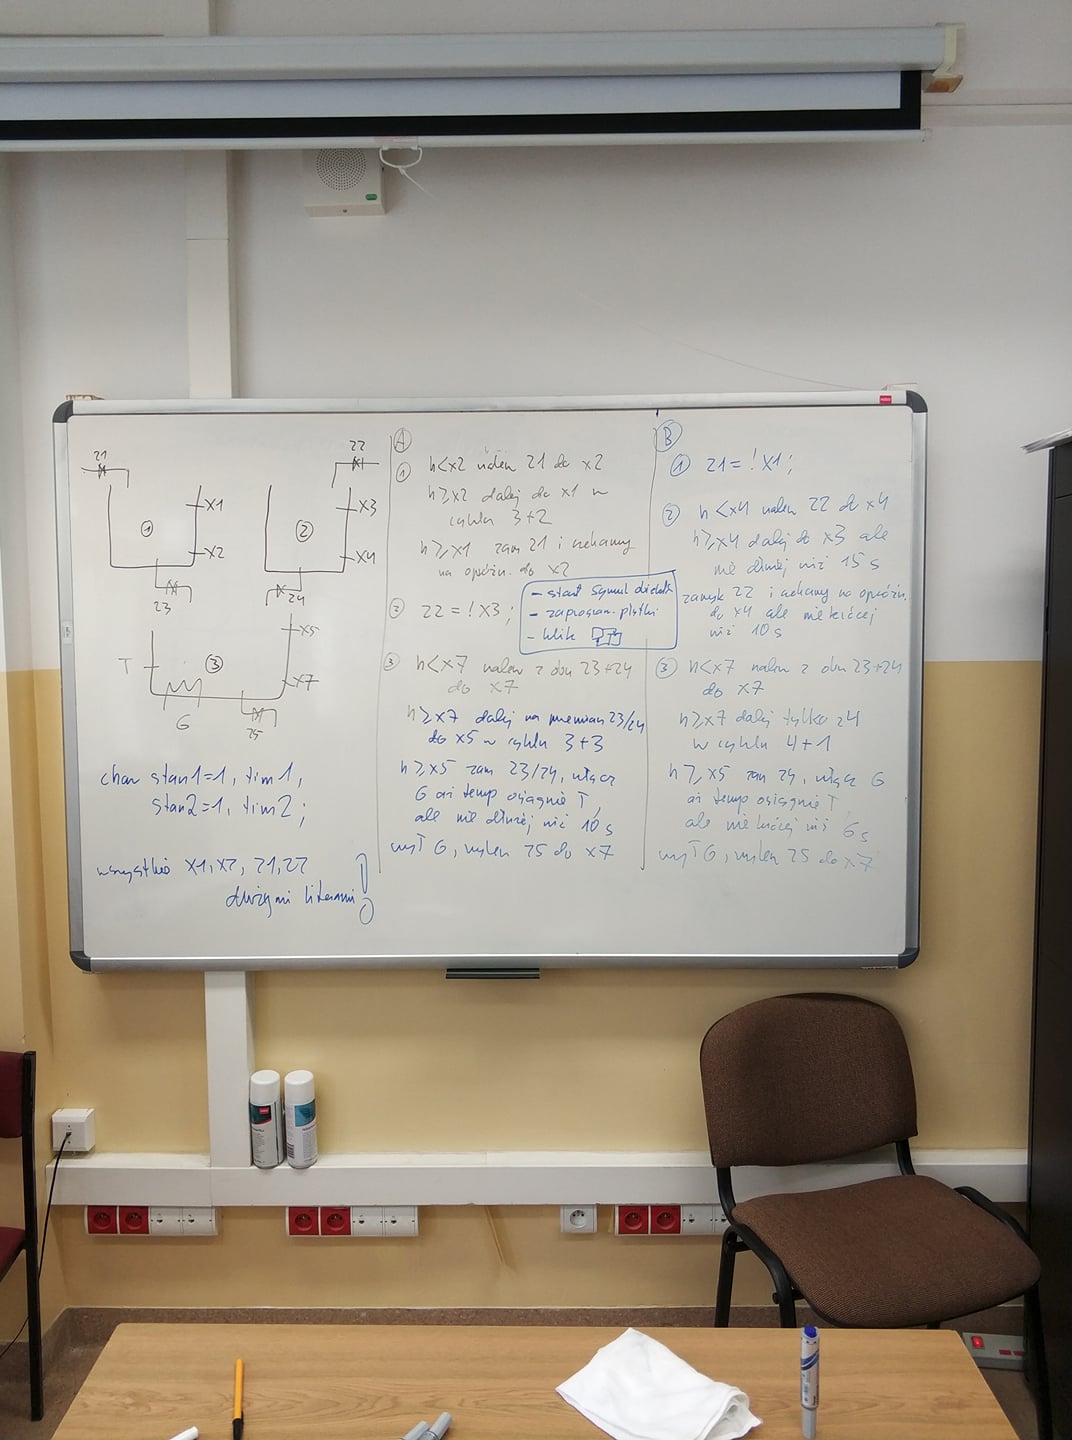 Z1
Z2
X1
X3
1
2
X2
X4
Z3
Z4
X5
T
3
X7
G
Z5
char stan1=1, tim1,
stan2=1, tim2;
wszystkie X1, X2, Z1, Z2
dużymi literami!
A
1
h<x2 Z1 do x2
h≥x2 dalej do x1 w
cyklu 3+2
h≥x1 zam Z1 i czekamy
na opróżn. do x2
2 Z2 = !X3;
- start symul
- zaprogram. płytki
- klik
3 h<x7 nalew z obu Z3+Z4
do x7
h≥x7 dalej na przemian Z3/Z4
do x5 w cyklu 3+3
h≥x5 zam Z3/Z4, włącz
G aż temp osiągnie T,
ale nie dłużej niż 10s
wył G, wylew Z5 do x7
B
1 Z1 = !X1;
2 h<x4 nalew Z2 do x4
h≥x4 dalej do x3 ale
nie dłużej niż 15s
zamyk Z2 i czekamy na opróżn.
do x4 ale nie krócej
niż 10s
3 h<x7 nalew z obu Z3+Z4
do x7
h≥x7 dalej tylko Z4
w cyklu 4+1
h≥x5 zam Z4, włącz G
aż temp osiągnie T
ale nie krócej niż 6s
wył G, wylew Z5 do x7